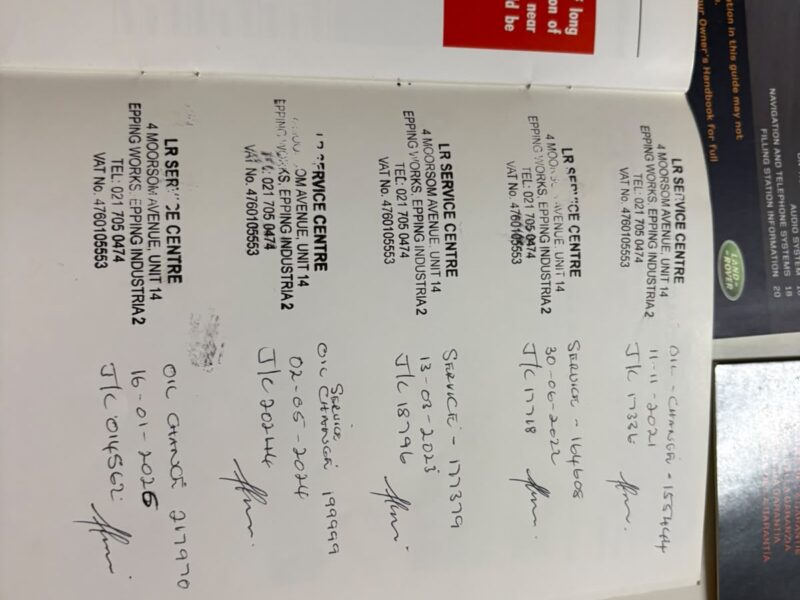 long
on of
near
d be
tion in this guide may not
ur Owner's Handbook for full
AUDIO SYSTEM 16
NAVIGATION AND TELEPHONE SYSTEMS 18
FILLING STATION INFORMATION 20
LAND ROVER
LR SERVICE CENTRE
4 MOORSOM AVENUE, UNIT 14
EPPING WORKS, EPPING INDUSTRIA 2
TEL: 021 705 0474
VAT No. 4760105553
OIL - CHANGE - 155444
11-11-2021
J/C 17336
LR SERVICE CENTRE
4 MOORSOM AVENUE, UNIT 14
EPPING WORKS, EPPING INDUSTRIA 2
TEL: 021 705 0474
VAT No. 4760105553
SERVICE - 164608
30-06-2022
J/C 17718
LR SERVICE CENTRE
4 MOORSOM AVENUE, UNIT 14
EPPING WORKS, EPPING INDUSTRIA 2
TEL: 021 705 0474
VAT No. 4760105553
SERVICE - 177379
13-03-2023
J/C 18796
LR SERVICE CENTRE
4 MOORSOM AVENUE, UNIT 14
EPPING WORKS, EPPING INDUSTRIA 2
TEL: 021 705 0474
VAT No. 4760105553
SERVICE
OIL CHANGE 199999
02-05-2024
J/C 20244
LR SERVICE CENTRE
4 MOORSOM AVENUE, UNIT 14
EPPING WORKS, EPPING INDUSTRIA 2
TEL: 021 705 0474
VAT No. 4760105553
OIL CHANGE 217970
16-01-2026
J/C 014562
GARANZIA
GARANTIA